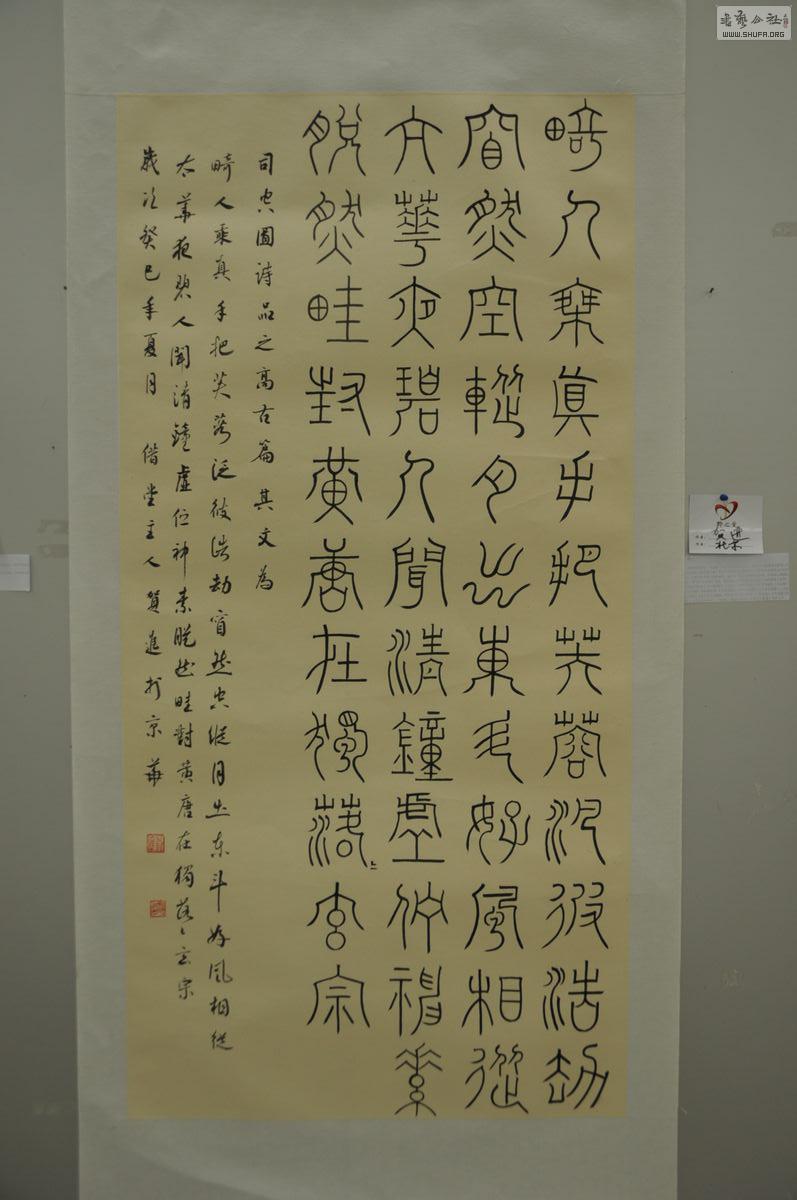 畸人乘真手把芙蓉汎彼浩劫
窅然空䡮月出東斗好風相從
太華夜碧人聞清鐘虛佇神素
脫然畦封黃唐在獨落〻玄宗
司空圖詩品之高古篇其文為
畸人乘真手把芙蓉泛彼浩劫窅然空縱月出東斗好風相從
太華夜碧人聞清鐘虛佇神素脫然畦封黃唐在獨落〻玄宗
歲次癸巳年夏月 偕堂主人賀進於京華
書藝公社
WWW.SHUFA.ORG